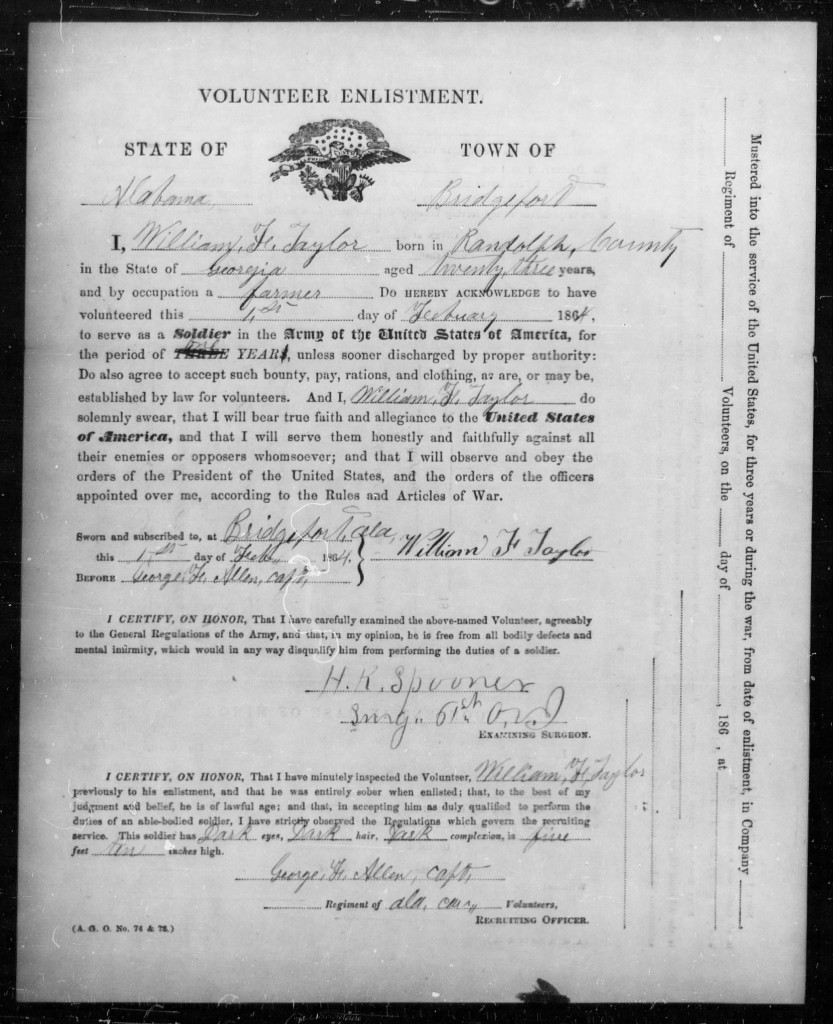 VOLUNTEER ENLISTMENT.
STATE OF TOWN OF
Alabama, Bridgeport
I, William, F. Taylor born in Randolph, County
in the State of Georgia aged twenty, three years,
and by occupation a farmer Do HEREBY ACKNOWLEDGE to have
volunteered this 1st day of Febuary 1864.
to serve as a Soldier in the Army of the United States of America, for
the period of THREE one YEARS, unless sooner discharged by proper authority:
Do also agree to accept such bounty, pay, rations, and clothing, as are, or may be,
established by law for volunteers. And I, William, F. Taylor do
solemnly swear, that I will bear true faith and allegiance to the United States
of America, and that I will serve them honestly and faithfully against all
their enemies or opposers whomsoever; and that I will observe and obey the
orders of the President of the United States, and the orders of the officers
appointed over me, according to the Rules and Articles of War.
Sworn and subscribed to, at Bridgeport, ala,
this 1st day of Feb,, 1864. William F Taylor
BEFORE George, F. Allen, capt,
I CERTIFY, ON HONOR, That I have carefully examined the above-named Volunteer, agreeably
to the General Regulations of the Army, and that, in my opinion, he is free from all bodily defects and
mental infirmity, which would in any way disqualify him from performing the duties of a soldier.
H. K. Spooner
Surg. 61st O.V.I
EXAMINING SURGEON.
I CERTIFY, ON HONOR, That I have minutely inspected the Volunteer, William, F. Taylor
previously to his enlistment, and that he was entirely sober when enlisted; that, to the best of my
judgment and belief, he is of lawful age; and that, in accepting him as duly qualified to perform the
duties of an able-bodied soldier, I have strictly observed the Regulations which govern the recruiting
service. This soldier has Dark eyes, Dark hair, Dark complexion, is five
feet ten inches high.
George, F. Allen, capt,
Regiment of ala, cav,, Volunteers,
RECRUITING OFFICER.
(A. G. O. No. 74 & 76.)
Mustered into the service of the United States, for three years or during the war, from date of enlistment, in Company
Regiment of Volunteers, on the day of , 186 , at